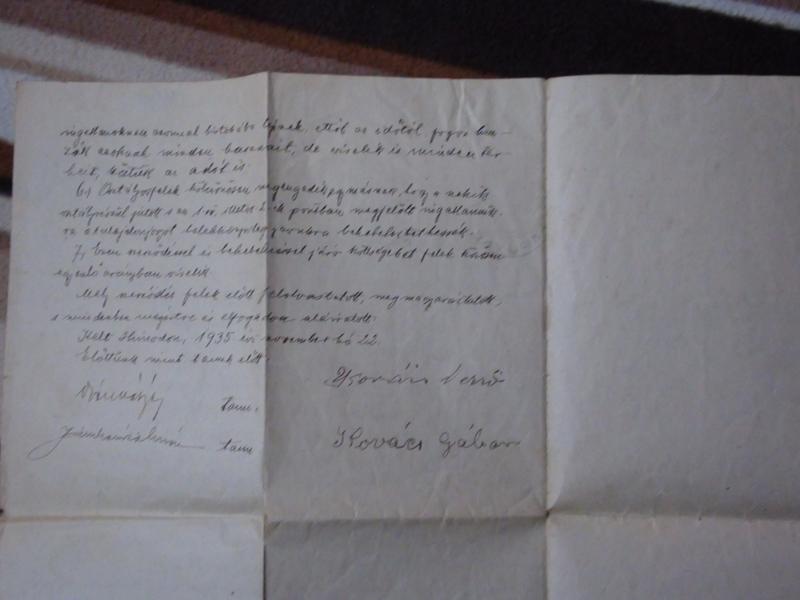 ingatlanoknak azonnal birtokába lépnek. Attól az időtől fogva huz-
zák azoknak minden hasznait, de viselik is minden ter-
heit, s az adót is
6.) Osztályosfelek kölcsönösen megengedik egymásnak, hogy a nekik
jutott s az 1. ill. 2. pontban megjelölt ingatlanok-
ra a tulajdonjogot bekebeleztethessék.
7.) Ezen szerződéssel és bekebelezéssel járó költségeket felek
egyenlő arányban viselik.
Mely szerződés felek előtt felolvastatott, megmagyaráztatott,
s mindenben megértve és elfogadva aláiratott.
Kelt 1935 évi november hó 22.
Előttünk mint tanuk előtt:
tanu.
tanu
Kovács
Kovács Gábor